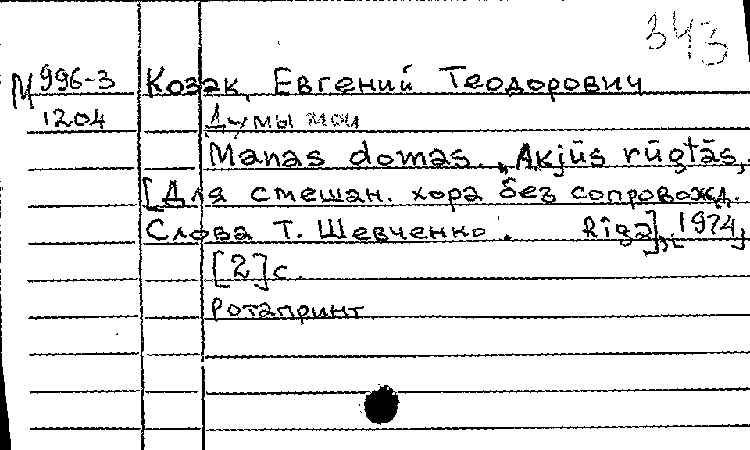 343
М 996-3 Козак, Евгений Теодорович
1204 Думы мои
Manas domas. "Akjūs rūgtās,
[Для смешан. хора без сопровожд.
Слова Т. Шевченко. Rīga], [1974]
[2] с.
Ротапринт